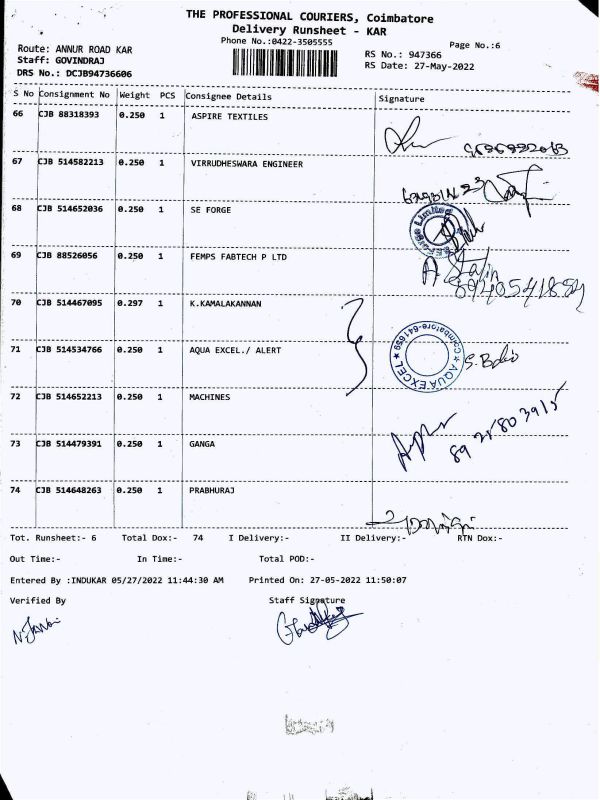 THE PROFESSIONAL COURIERS, Coimbatore
Delivery Runsheet - KAR
Phone No.:0422-3505555
Page No.:6
Route: ANNUR ROAD KAR
Staff: GOVINDRAJ
DRS No.: DCJB94736606
RS No.: 947366
RS Date: 27-May-2022
S No Consignment No Weight PCS Consignee Details Signature
66 CJB 88318393 0.250 1 ASPIRE TEXTILES
67 CJB 514582213 0.250 1 VIRRUDHESWARA ENGINEER
68 CJB 514652036 0.250 1 SE FORGE
SE Forge Limited
69 CJB 88526056 0.250 1 FEMPS FABTECH P LTD
70 CJB 514467095 0.297 1 K.KAMALAKANNAN
71 CJB 514534766 0.250 1 AQUA EXCEL./ ALERT
★ AQUA EXCEL ★ Coimbatore-641659
72 CJB 514652213 0.250 1 MACHINES
8925803915
73 CJB 514479391 0.250 1 GANGA
74 CJB 514648263 0.250 1 PRABHURAJ
Tot. Runsheet:- 6 Total Dox:- 74 I Delivery:- II Delivery:- RTN Dox:-
Out Time:- In Time:- Total POD:-
Entered By :INDUKAR 05/27/2022 11:44:30 AM Printed On: 27-05-2022 11:50:07
Verified By Staff Signature